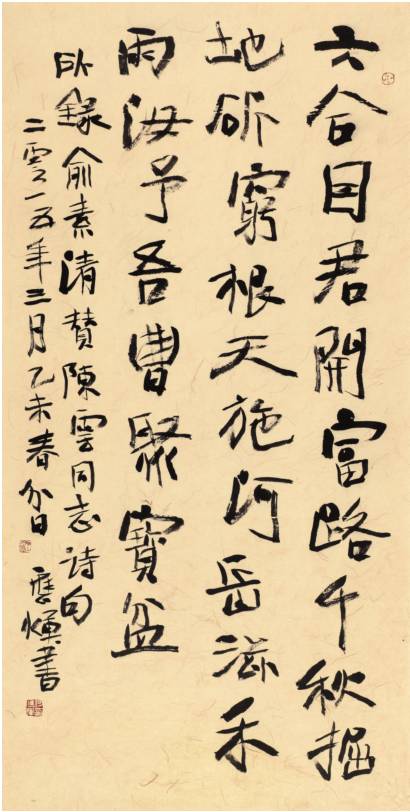 六合因君開富路千秋掘
地斫窮根天施河岳滋禾
雨海予吾曹聚寶盆
録俞素清赞陳雲同志诗句
二零一五年三月乙未春分日 書